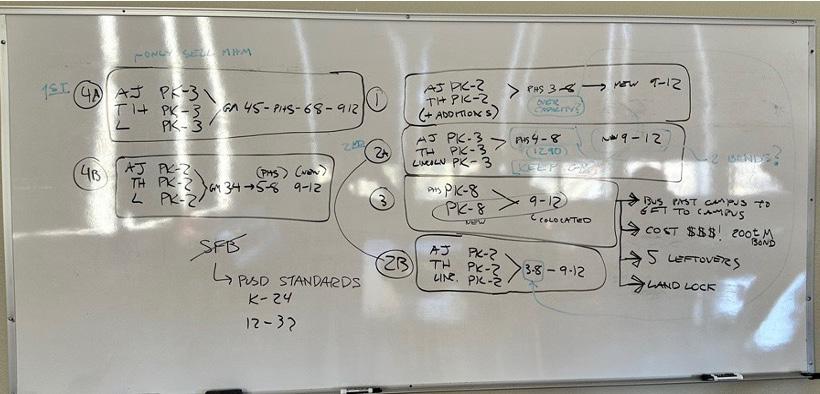 ONLY SELL MHM
1ST
4A
AJ PK-3
TH PK-3
L PK-3
GM 45 - PHS - 68 - 912
4B
AJ PK-2
TH PK-2
L PK-2
(PHS) (NEW)
GM 34 → 5-8 9-12
SFB
PUSD STANDARDS
K-24
12-32
1
AJ PK-2
TH PK-2
(+ ADDITIONS)
PHS 3-8 → NEW 9-12
OVER
CAPACITY
2ND
2A
AJ PK-3
TH PK-3
LINCOLN PK-3
PHS 4-8
(1290)
NEW 9-12
2 BONDS?
3
PHS PK-8
PK-8
NEW
9-12
COLOCATED
→ BUS PAST CAMPUS TO
GET TO CAMPUS
→ COST $$$! 200+ M
BOND
→ 5 LEFTOVERS
→ LAND LOCK
2B
AJ PK-2
TH PK-2
LINC. PK-2
3-8 - 9-12